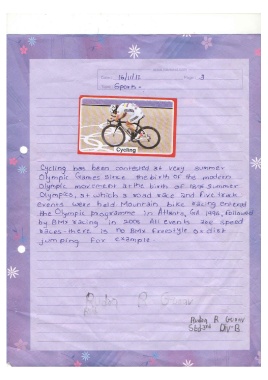 Date: 16/11/11 Page 3
Sports.
Cycling
Cycling has been contested at very summer
Olympic Games since the birth of the modern
Olympic movement at the birth of 1896 Summer
Olympics, at which a road race and five track
events were held Mountain bike racing entered
the Olympic programme in Atlanta, GA 1996, followed
by BMX racing in 2008 All events are speed
races there is no BMX freestyle or dirt
jumping For example
R
R
Std 3rd Div B